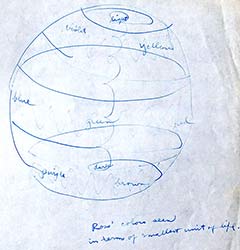 light
violet
yellow
blue
green
red
purple
dark
brown
colors seen
in terms of smallest unit of life